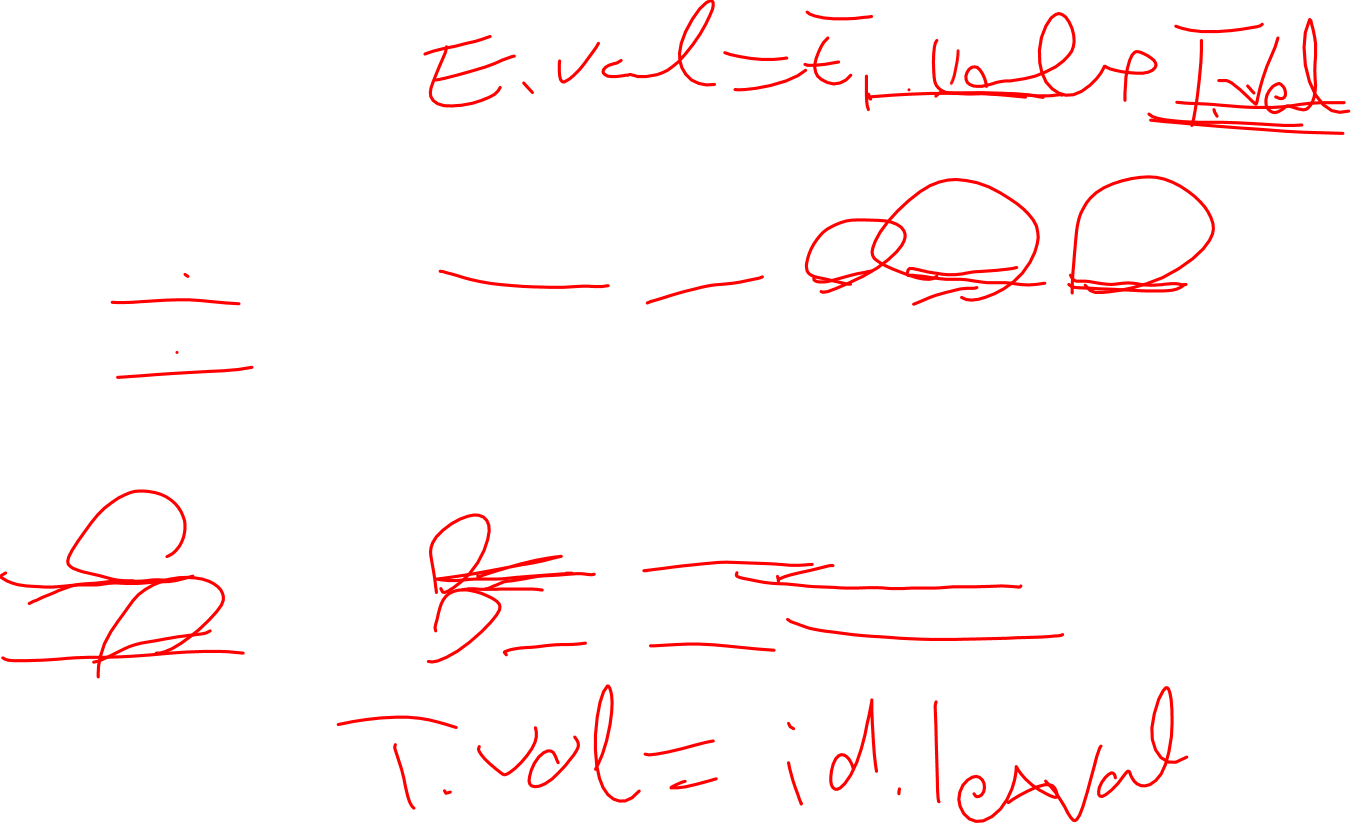 E.val = E₁.val + T.val
T.val = id.lexval